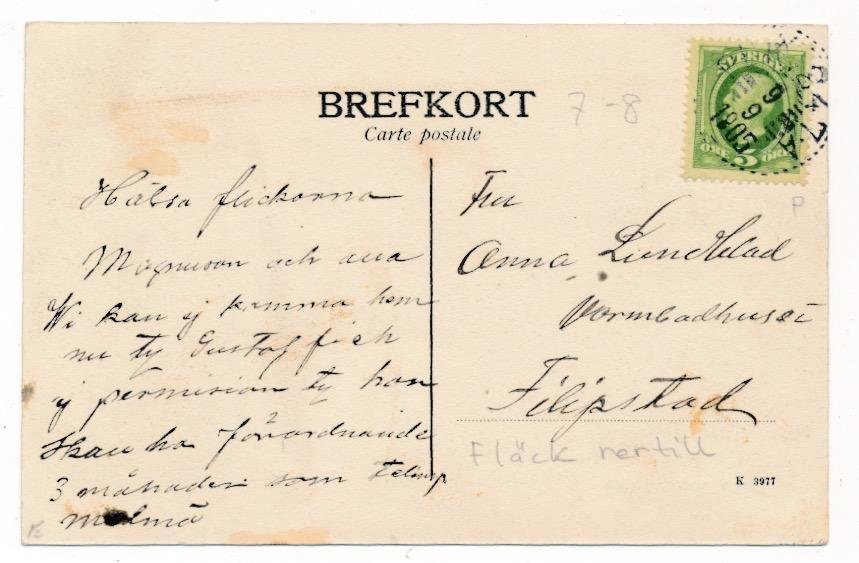 BREFKORT
Carte postale
7-8
SVERIGE
5
ÖRE ÖRE
1905
P
Hälsa flickorna
Magnuson och
Wi kan ej komma hem
nu ty Gustaf fick
ej permision ty han
skau ha förordnande
3 månader som
malmö
Fru
Anna Lundblad
Varmbadhuset
Filipstad
Fläck nertill
K 3977